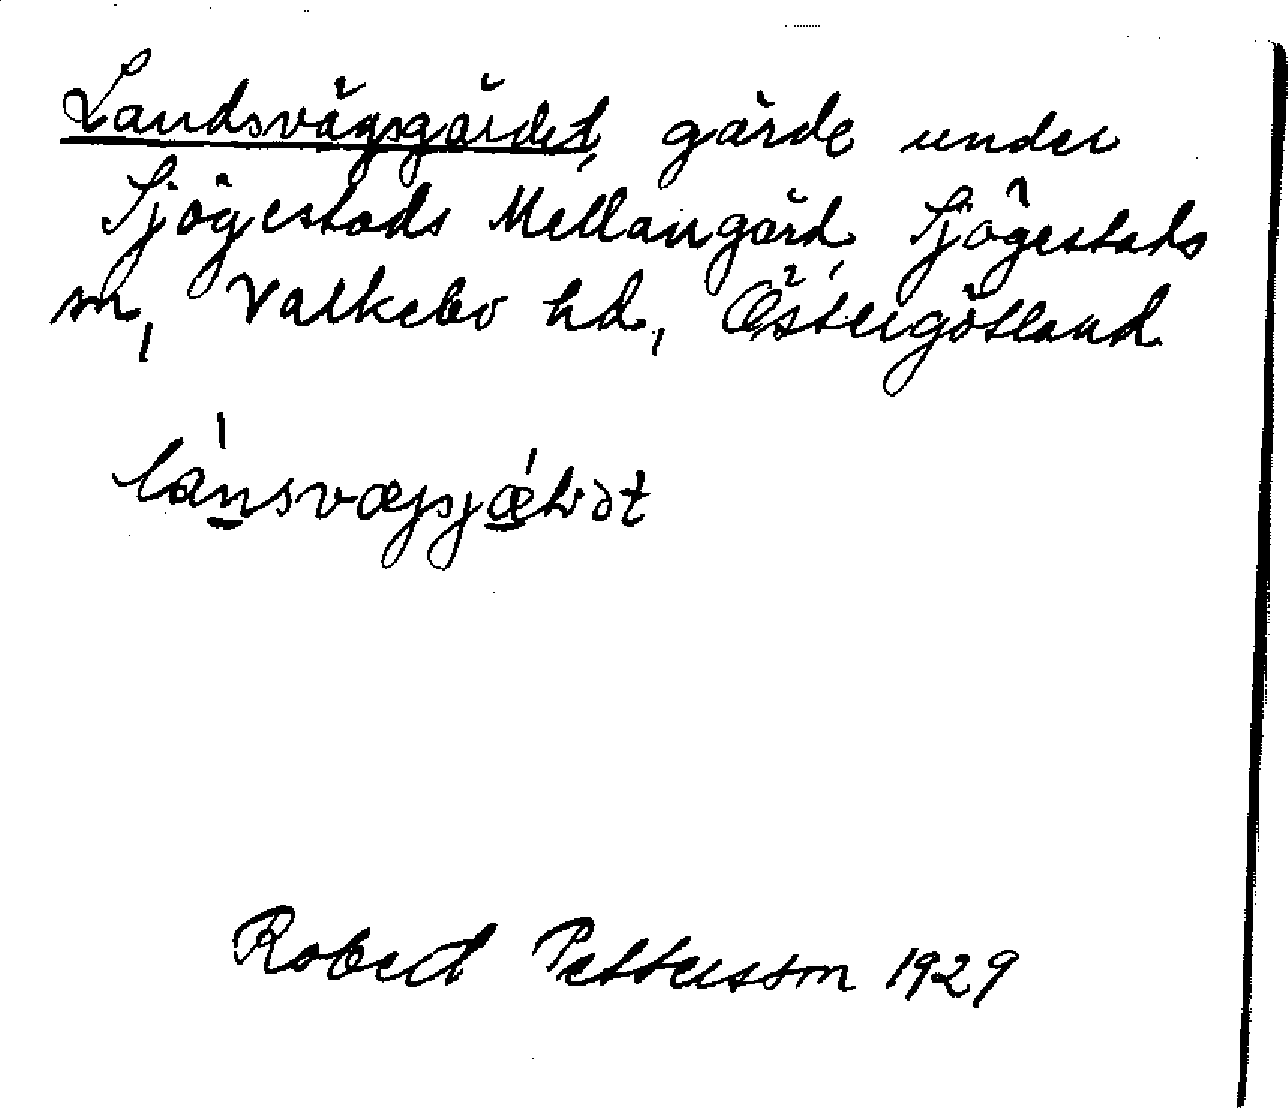 Landsvägsgärdet, gärde under
Sjögestads Mellangård, Sjögestads
sn, Valkebo hd., Östergötland
lánsvæjsjǽḷdət
Robert Pettersson 1929